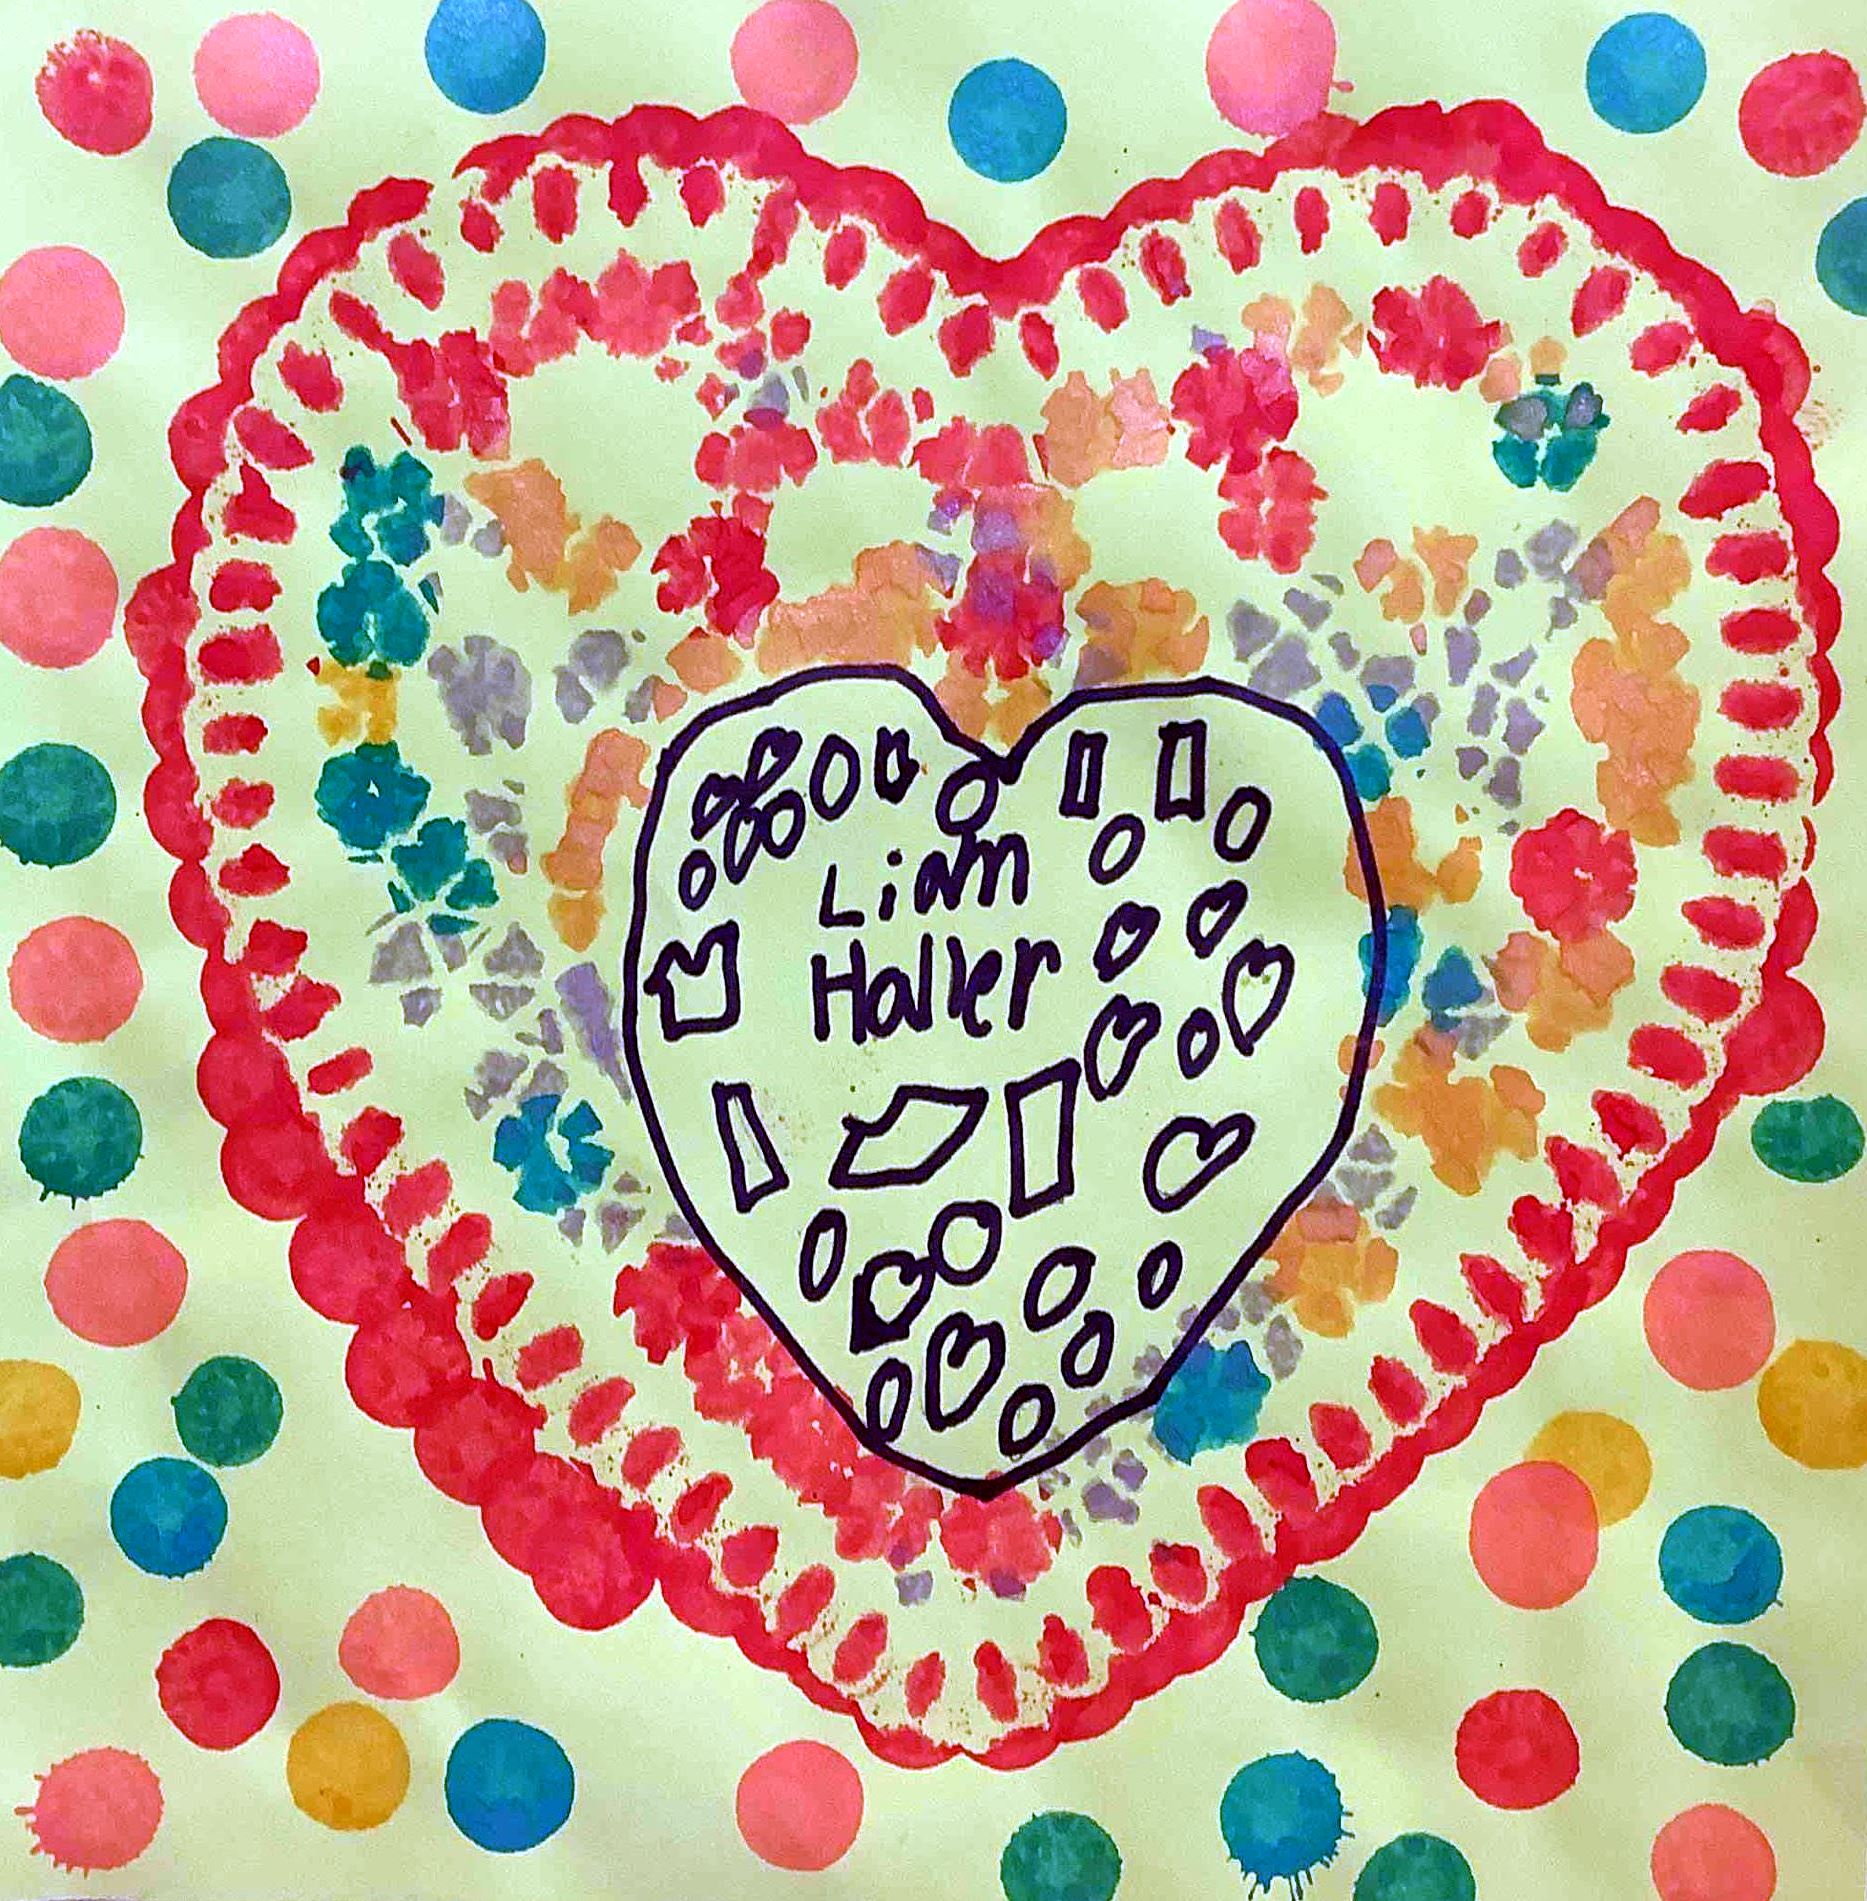 Liam
Haller